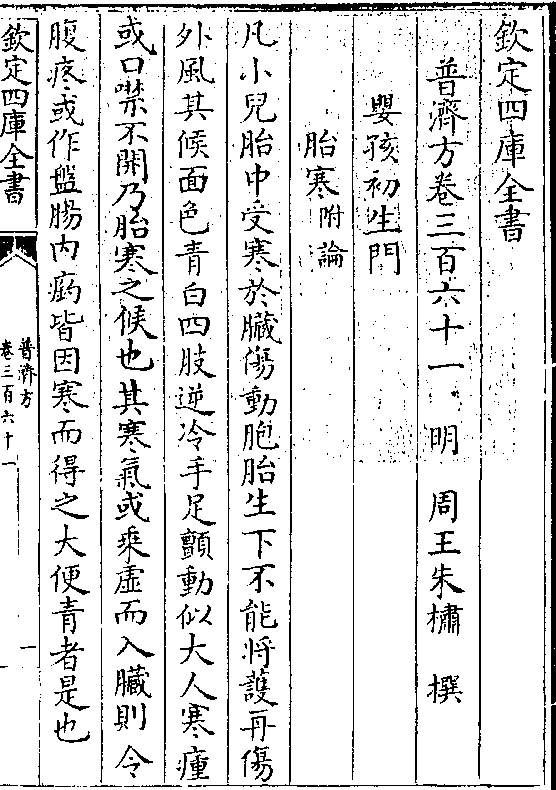 欽定四庫全書
普濟方卷三百六十一　明　周王朱橚　撰
嬰孩初生門
胎寒附論
凡小兒胎中受寒於臟傷動胞胎生下不能將護再傷
外風其候面色青白四肢逆冷手足顫動似大人寒瘧
或口噤不開乃胎寒之候也其寒氣或乗虚而入臟則令
腹疼或作盤腸内瘹皆因寒而得之大便青者是也
欽定四庫全書
普濟方
卷三百六十一
一